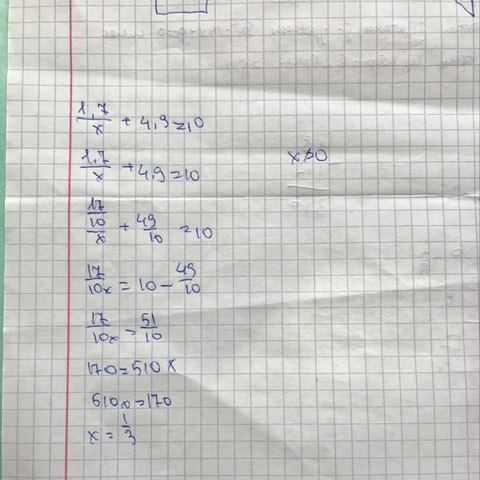 1,7/x + 4,9 = 10
1,7/x + 4,9 = 10 x ≠ 0
17/10/x + 49/10 = 10
17/10x = 10 - 49/10
17/10x = 51/10
170 = 510x
510x = 170
x = 1/3